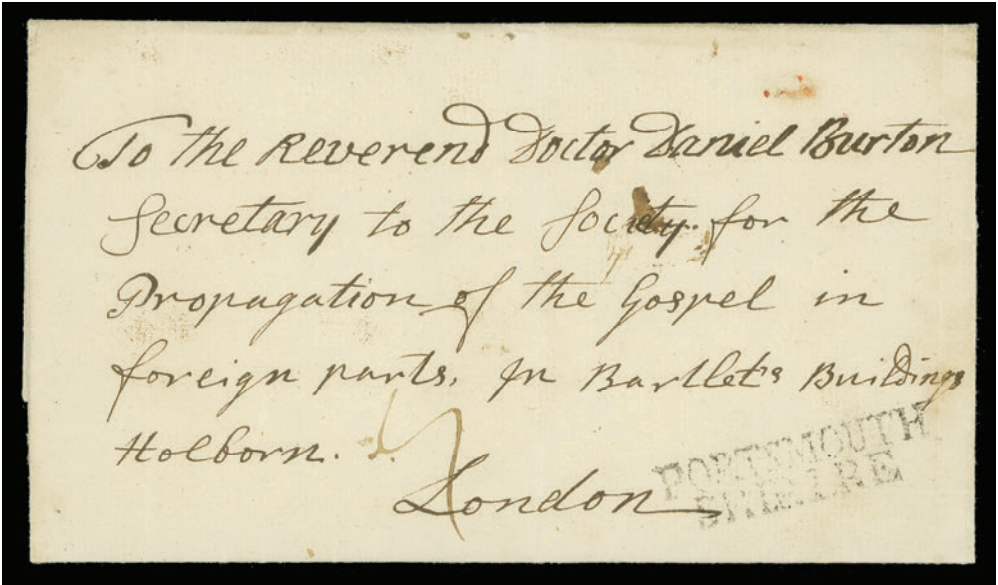 To the Reverend Doctor Daniel Burton
Secretary to the Society for the
Propagation of the Gospel in
foreign parts, In Bartlet's Buildings
Holborn.
London
PORTSMOUTH